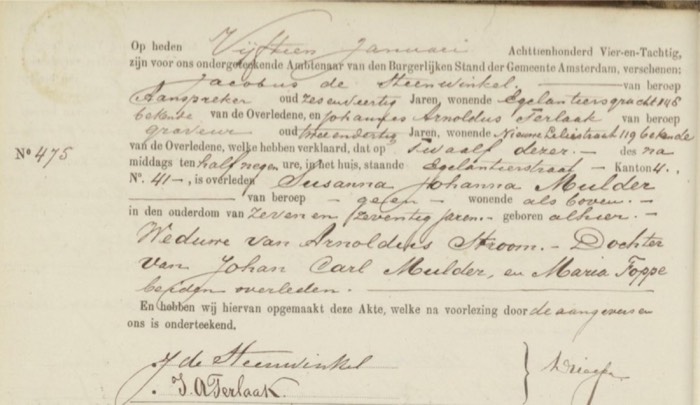 Op heden Vijftien Januari Achttienhonderd Vier-en-Tachtig,
zijn voor ons ondergeteekende Ambtenaar van den Burgerlijken Stand der Gemeente Amsterdam, verschenen:
Jacobus de Steenwinkel. — van beroep
Aanspreker oud zesenveertig Jaren, wonende Egelantiersgracht 146
bekende van de Overledene, en Johannes Arnoldus Terlaak van beroep
graveur oud tweeendertig Jaren, wonende Nieuwe Leliestraat 119 bekende
Nº 475
van de Overledene, welke hebben verklaard, dat op Twaalf dezer. — des na
middags ten half negen ure, in het huis, staande Egelantierstraat — Kanton 4. -
Nº. 41 —, is overleden Susanna Johanna Mulder
— van beroep — geen — wonende als boven. —
in den ouderdom van zeven en zeventig jaren. — geboren alhier. —
Weduwe van Arnoldus Stroom. — Dochter
van Johan Carl Mulder, en Maria Foppe
beiden overleden.
En hebben wij hiervan opgemaakt deze Akte, welke na voorlezing door de aangevers en
ons is onderteekend.
J de Steenwinkel
J. A Terlaak.